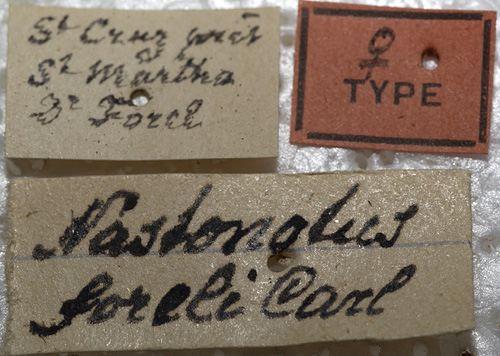 St Cruz près
St Martha
Dr Forel
♀
TYPE
Nastonotus
foreli Carl